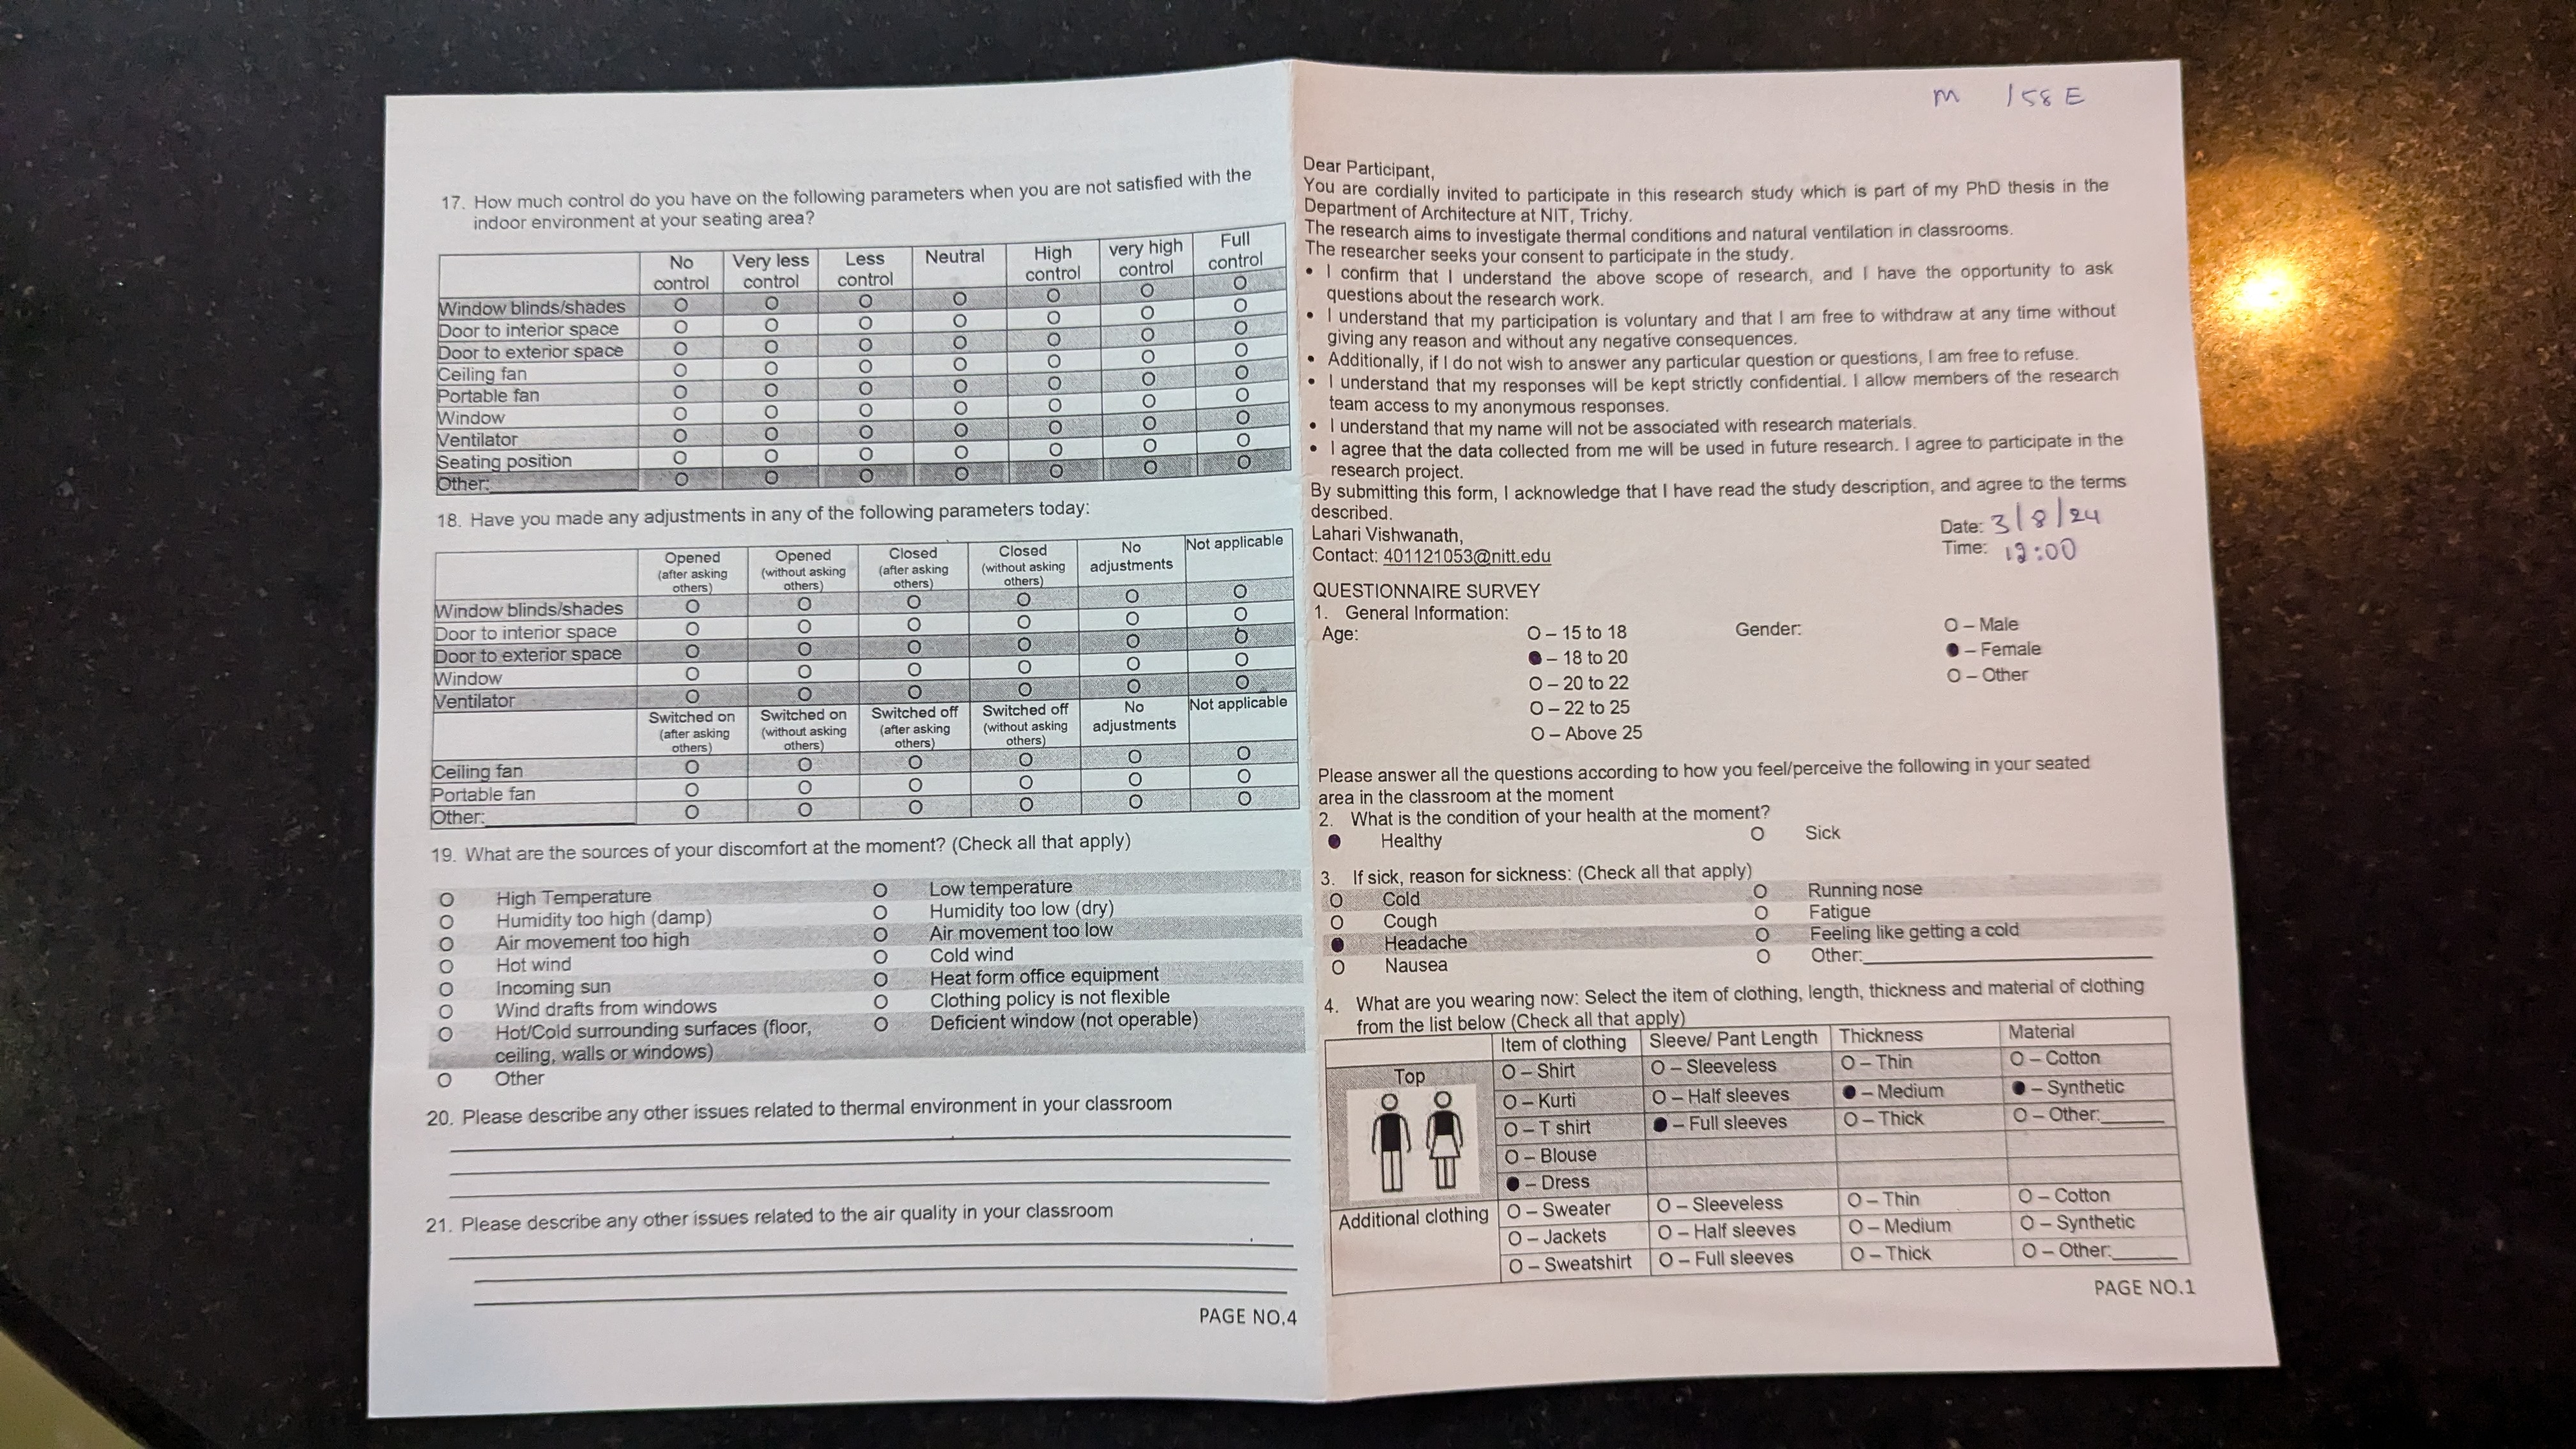 17. How much control do you have on the following parameters when you are not satisfied with the
indoor environment at your seating area?
No control Very less control Less control Neutral High control very high control Full control
Window blinds/shades O O O O O O O
Door to interior space O O O O O O O
Door to exterior space O O O O O O O
Ceiling fan O O O O O O O
Portable fan O O O O O O O
Window O O O O O O O
Ventilator O O O O O O O
Seating position O O O O O O O
Other:________ O O O O O O O
18. Have you made any adjustments in any of the following parameters today:
Opened (after asking others) Opened (without asking others) Closed (after asking others) Closed (without asking others) No adjustments Not applicable
Window blinds/shades O O O O O O
Door to interior space O O O O O O
Door to exterior space O O O O O O
Window O O O O O O
Ventilator O O O O O O
Switched on (after asking others) Switched on (without asking others) Switched off (after asking others) Switched off (without asking others) No adjustments Not applicable
Ceiling fan O O O O O O
Portable fan O O O O O O
Other:________ O O O O O O
19. What are the sources of your discomfort at the moment? (Check all that apply)
O High Temperature O Low temperature
O Humidity too high (damp) O Humidity too low (dry)
O Air movement too high O Air movement too low
O Hot wind O Cold wind
O Incoming sun O Heat form office equipment
O Wind drafts from windows O Clothing policy is not flexible
O Hot/Cold surrounding surfaces (floor, O Deficient window (not operable)
ceiling, walls or windows)
O Other
20. Please describe any other issues related to thermal environment in your classroom
21. Please describe any other issues related to the air quality in your classroom
PAGE NO.4
M /58 E
Dear Participant,
You are cordially invited to participate in this research study which is part of my PhD thesis in the
Department of Architecture at NIT, Trichy.
The research aims to investigate thermal conditions and natural ventilation in classrooms.
The researcher seeks your consent to participate in the study.
• I confirm that I understand the above scope of research, and I have the opportunity to ask
questions about the research work.
• I understand that my participation is voluntary and that I am free to withdraw at any time without
giving any reason and without any negative consequences.
• Additionally, if I do not wish to answer any particular question or questions, I am free to refuse.
• I understand that my responses will be kept strictly confidential. I allow members of the research
team access to my anonymous responses.
• I understand that my name will not be associated with research materials.
• I agree that the data collected from me will be used in future research. I agree to participate in the
research project.
By submitting this form, I acknowledge that I have read the study description, and agree to the terms
described.
Lahari Vishwanath, Date: 3/8/24
Contact: 401121053@nitt.edu Time: 12:00
QUESTIONNAIRE SURVEY
1. General Information:
Age: O – 15 to 18 Gender: O – Male
● – 18 to 20 ● – Female
O – 20 to 22 O – Other
O – 22 to 25
O – Above 25
Please answer all the questions according to how you feel/perceive the following in your seated
area in the classroom at the moment
2. What is the condition of your health at the moment?
● Healthy O Sick
3. If sick, reason for sickness: (Check all that apply)
O Cold O Running nose
O Cough O Fatigue
● Headache O Feeling like getting a cold
O Nausea O Other:________
4. What are you wearing now: Select the item of clothing, length, thickness and material of clothing
from the list below (Check all that apply)
Item of clothing Sleeve/ Pant Length Thickness Material
Top O – Shirt O – Sleeveless O – Thin O – Cotton
O – Kurti O – Half sleeves ● – Medium ● – Synthetic
O – T shirt ● – Full sleeves O – Thick O – Other:______
O – Blouse
● – Dress
Additional clothing O – Sweater O – Sleeveless O – Thin O – Cotton
O – Jackets O – Half sleeves O – Medium O – Synthetic
O – Sweatshirt O – Full sleeves O – Thick O – Other:______
PAGE NO.1